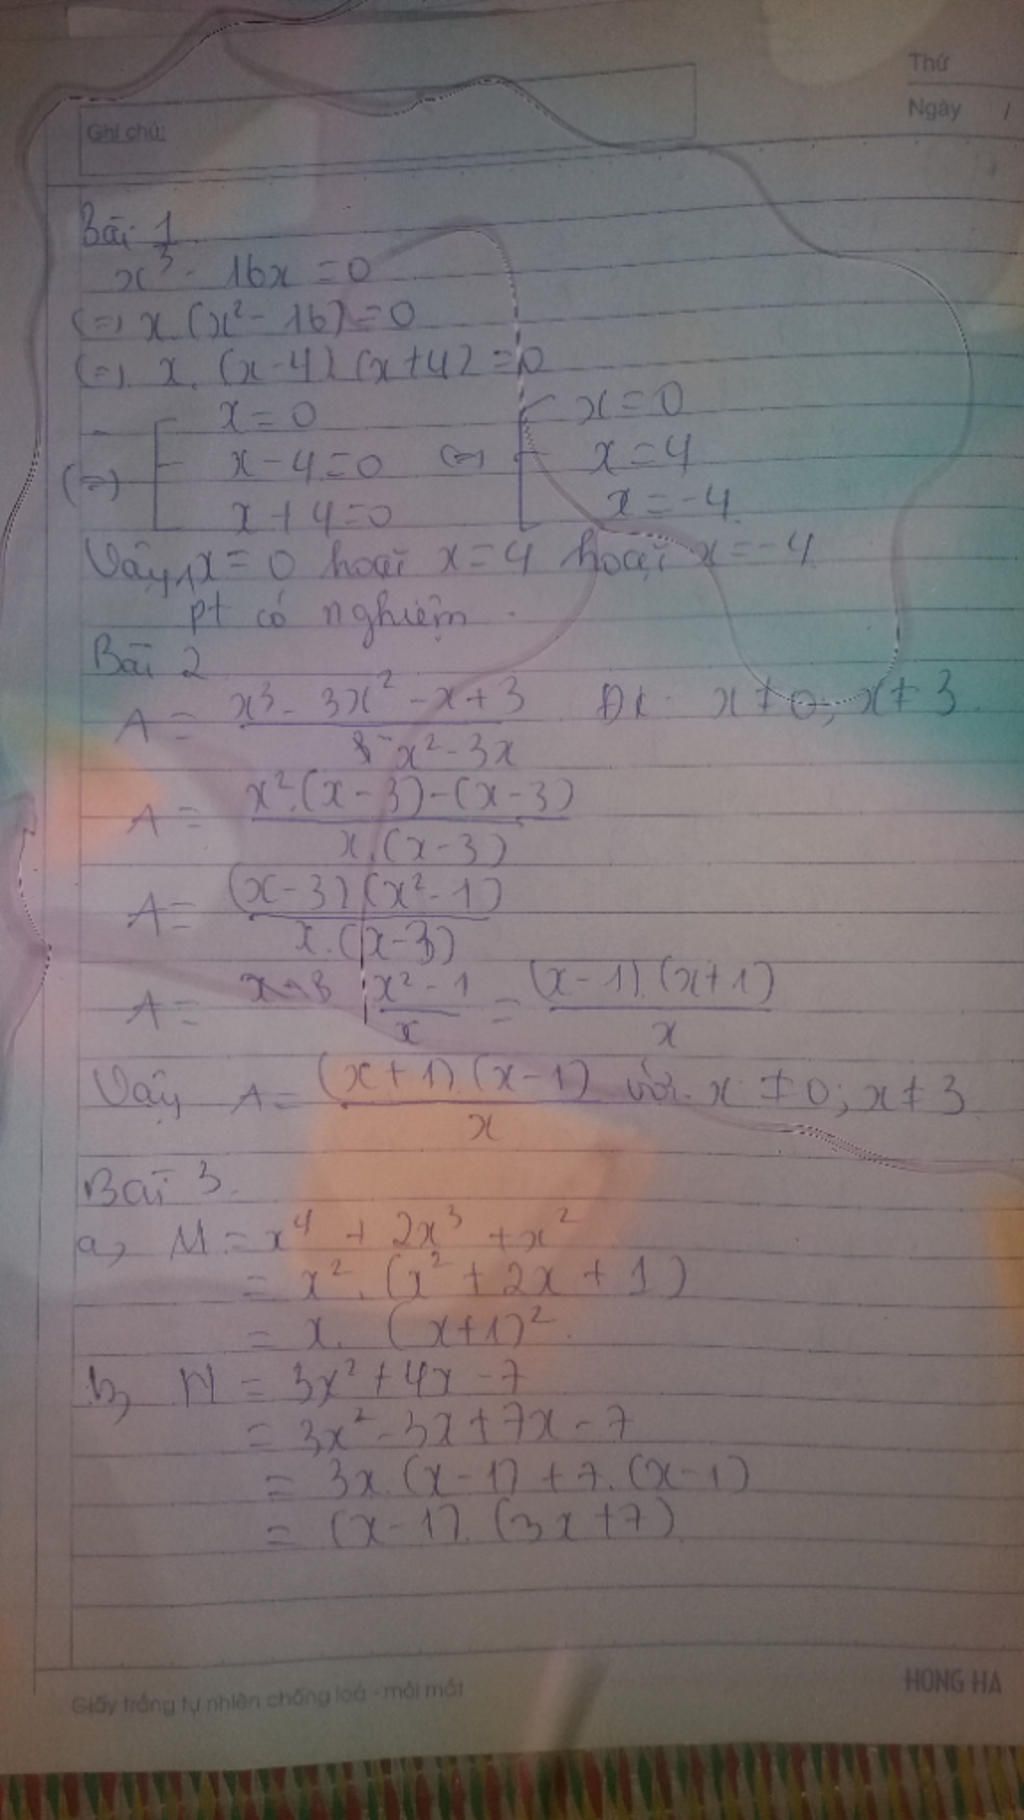 Thứ
Ngày /
Ghi chú:
Bài 1
x³ - 16x = 0
(=) x.(x² - 16) = 0
(=) x.(x-4).(x+4) = 0
(=) [ x = 0 (=) [ x = 0
x - 4 = 0 x = 4
x + 4 = 0 x = -4
Vậy x = 0 hoặc x = 4 hoặc x = -4
pt có nghiệm.
Bài 2
A = (x³ - 3x² - x + 3) / (x² - 3x) Đk: x ≠ 0; x ≠ 3
A = (x².(x-3) - (x-3)) / (x.(x-3))
A = ((x-3).(x²-1)) / (x.(x-3))
A = (x² - 1) / x = ((x-1).(x+1)) / x
Vậy A = ((x+1).(x-1)) / x với x ≠ 0; x ≠ 3
Bài 3
a, M = x⁴ + 2x³ + x²
= x².(x² + 2x + 1)
= x.(x+1)²
b, N = 3x² + 4x - 7
= 3x² - 3x + 7x - 7
= 3x.(x-1) + 7.(x-1)
= (x-1).(3x+7)
Giấy trắng tự nhiên chống loá - mỏi mắt
HONG HA